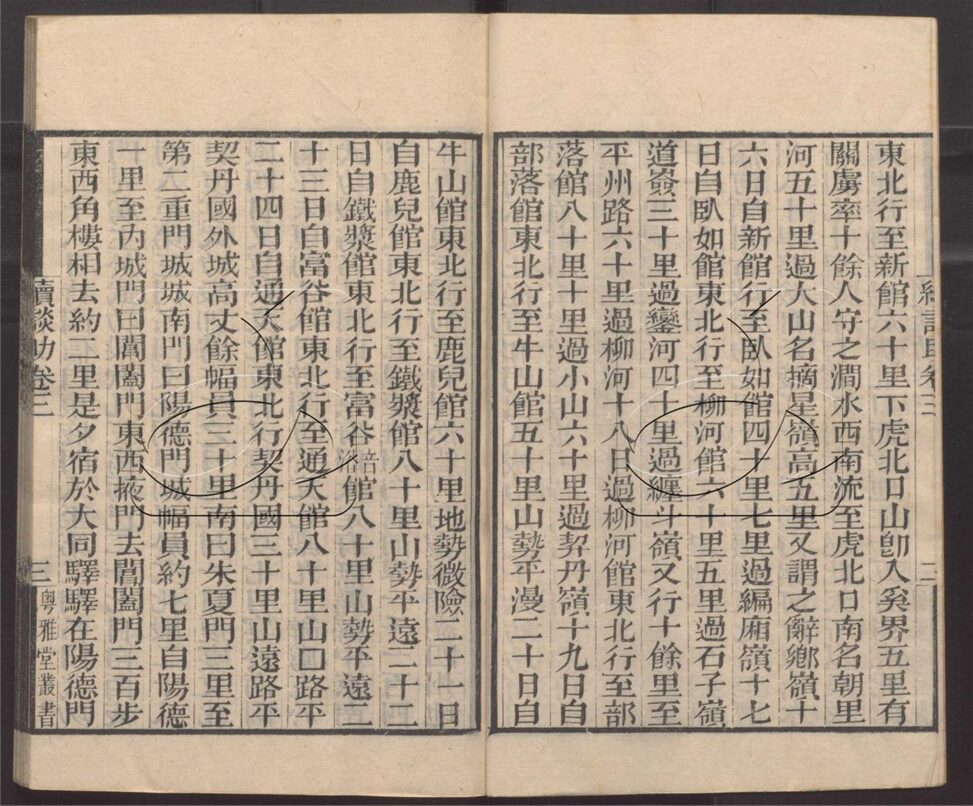 東北行至新館六十里下虎北口山卽入奚界五里有
關虜率十餘人守之澗水西南流至虎北口南名朝里
河五十里過大山名摘星嶺高五里又謂之辭鄉嶺十
六日自新館行至臥如館四十里七里過編廂嶺十七
日自臥如館東北行至柳河館六十里五里過石子嶺
道嶮三十里過鑾河四十里過纏斗嶺又行十餘里至
平州路六十里過柳河十八日過柳河館東北行至部
落館八十里十里過小山六十里過契丹嶺十九日自
部落館東北行至牛山館五十里山勢平漫二十日自
牛山館東北行至鹿兒館六十里地勢微險二十一日
自鹿兒館東北行至鐵漿館八十里山勢平遠二十二
日自鐵漿館東北行至富谷館八十里山勢平遠二
十三日自富谷館東北行至通天館八十里山口路平
二十四日自通天館東北行契丹國三十里山遠路平
契丹國外城高丈餘幅員三十里南曰朱夏門三里至
第二重門城城南門曰陽德門城幅員約七里自陽德
一里至內城門曰閶闔門東西掖門去閶闔門三百步
東西角樓相去約二里是夕宿於大同驛驛在陽德門
續談助卷三
三
粵雅堂叢書